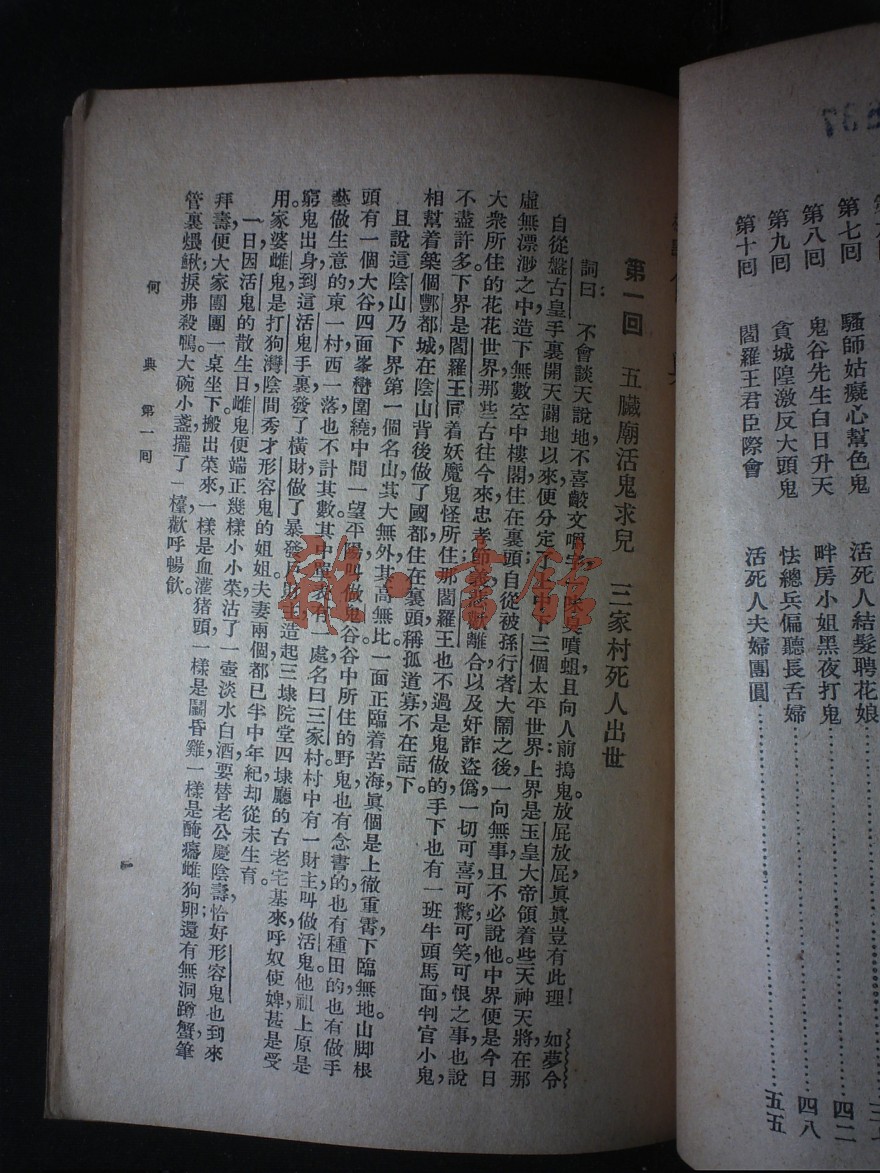 第七回 騷師姑癡心幫色鬼 活死人結髮聘花娘
第八回 鬼谷先生白日升天 畔房小姐黑夜打鬼……四二
第九回 貪城隍激反大頭鬼 怯總兵偏聽長舌婦……四八
第十回 閻羅王君臣際會 活死人夫婦團圓……五五
第一回 五臟廟活鬼求兒 三家村死人出世
詞曰: 不會談天說地,不喜齩文嚼字,一味臭噴蛆,且向人前搗鬼。放屁放屁,眞眞豈有此理! 如夢令
自從盤古皇手裏開天闢地以來,便分定了上中下三個太平世界:上界是玉皇大帝領着些天神天將,在那
虛無漂渺之中,造下無數空中樓閣,住在裏頭,自從被孫行者大鬧之後,一向無事,且不必說他。中界便是今日
大衆所住的花花世界,那些古往今來忠孝節義,悲歡離合,以及奸詐盜僞,一切可喜可驚可笑可恨之事,也說
不盡許多。下界是閻羅王同着妖魔鬼怪所住。那閻羅王也不過是鬼做的,手下也有一班牛頭馬面,判官小鬼,
相幫着築個酆都城,在陰山背後做了國都,住在裏頭稱孤道寡,不在話下。
且說這陰山乃下界第一個名山,其大無外,其高無比。一面正臨着苦海,眞個是上徹重霄,下臨無地。山脚根
頭有一個大谷,四面峯巒圍繞,中間一望平陽,叫做鬼谷。谷中所住的野鬼,也有念書的,也有種田的,也有做手
藝做生意的,東一村,西一落,也不計其數。其中單表有一處名曰三家村,村中有一財主,叫做活鬼。他祖上原是
窮鬼出身,到這活鬼手裏,發了橫財,做了暴發財主,造起三埭院堂四埭廳的古老宅基來,呼奴使婢,甚是受
用。家婆雌鬼,是打狗灣陰間秀才形容鬼的姐姐。夫妻兩個,都已半中年紀,却從未生育。
一日,因活鬼的散生日,雌鬼便端正幾樣小小菜,沽了一壺淡水白酒,要替老公慶陰壽。恰好形容鬼也到來
拜壽,便大家團團一桌坐下。搬出菜來,一樣是血灌猪頭,一樣是鬭昏雞,一樣是醃癟雌狗卵;還有無洞蹲蟹,筆
管裏煨鰍,捩弗殺鴨。大碗小盞,擺了一檯,歡呼暢飲。
何典 第一回
一